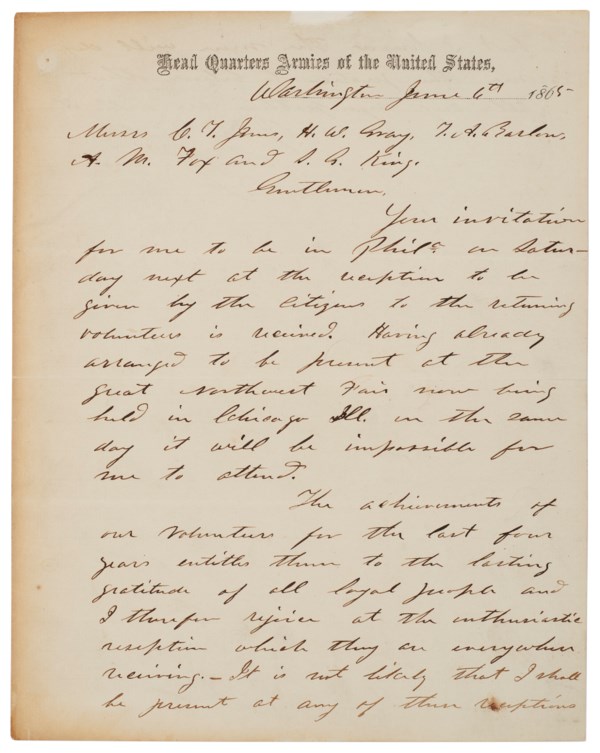 Head Quarters Armies of the United States,
Washington June 6th 1865
Messrs C. T. Jones, H. W. Gray, T. A. Barlow,
A. M. Fox and S. G. King.
Gentlemen,
Your invitation
for me to be in Phila on Satur-
day next at the reception to be
given by the Citizens to the returning
volunteers is received. Having already
arranged to be present at the
great Northwest Fair now being
held in Chicago Ill. on the same
day it will be impossible for
me to attend.
The achievements of
our Volunteers for the last four
years entitles them to the lasting
gratitude of all loyal people and
I therefor rejoice at the enthusiastic
reseption which they are everywhere
receiving. — It is not likely that I shall
be present at any of these receptions